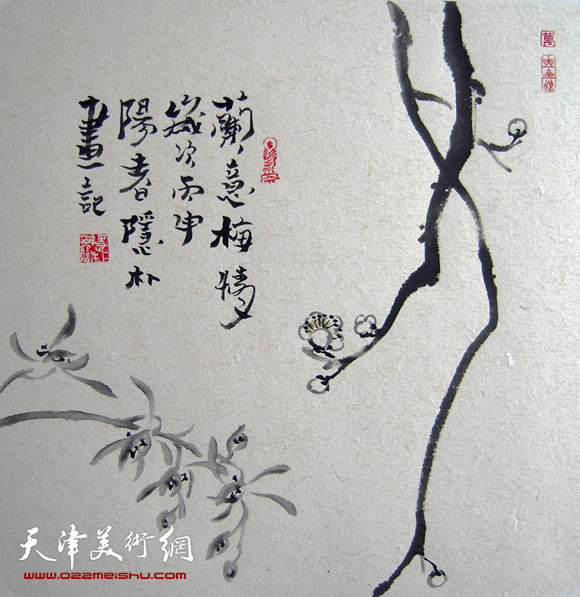 蘭意梅情
歲次丙申
陽春隱朴
畫記
天津美術網
www.022meishu.com